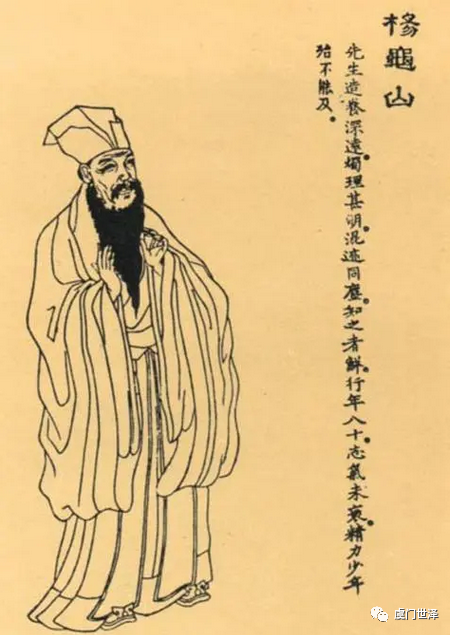 楊龜山
先生造養深遠。燭理甚明。混迹同塵。知之者鮮。行年八十。志氣未衰。精力少年
殆不能及。
虞门世泽